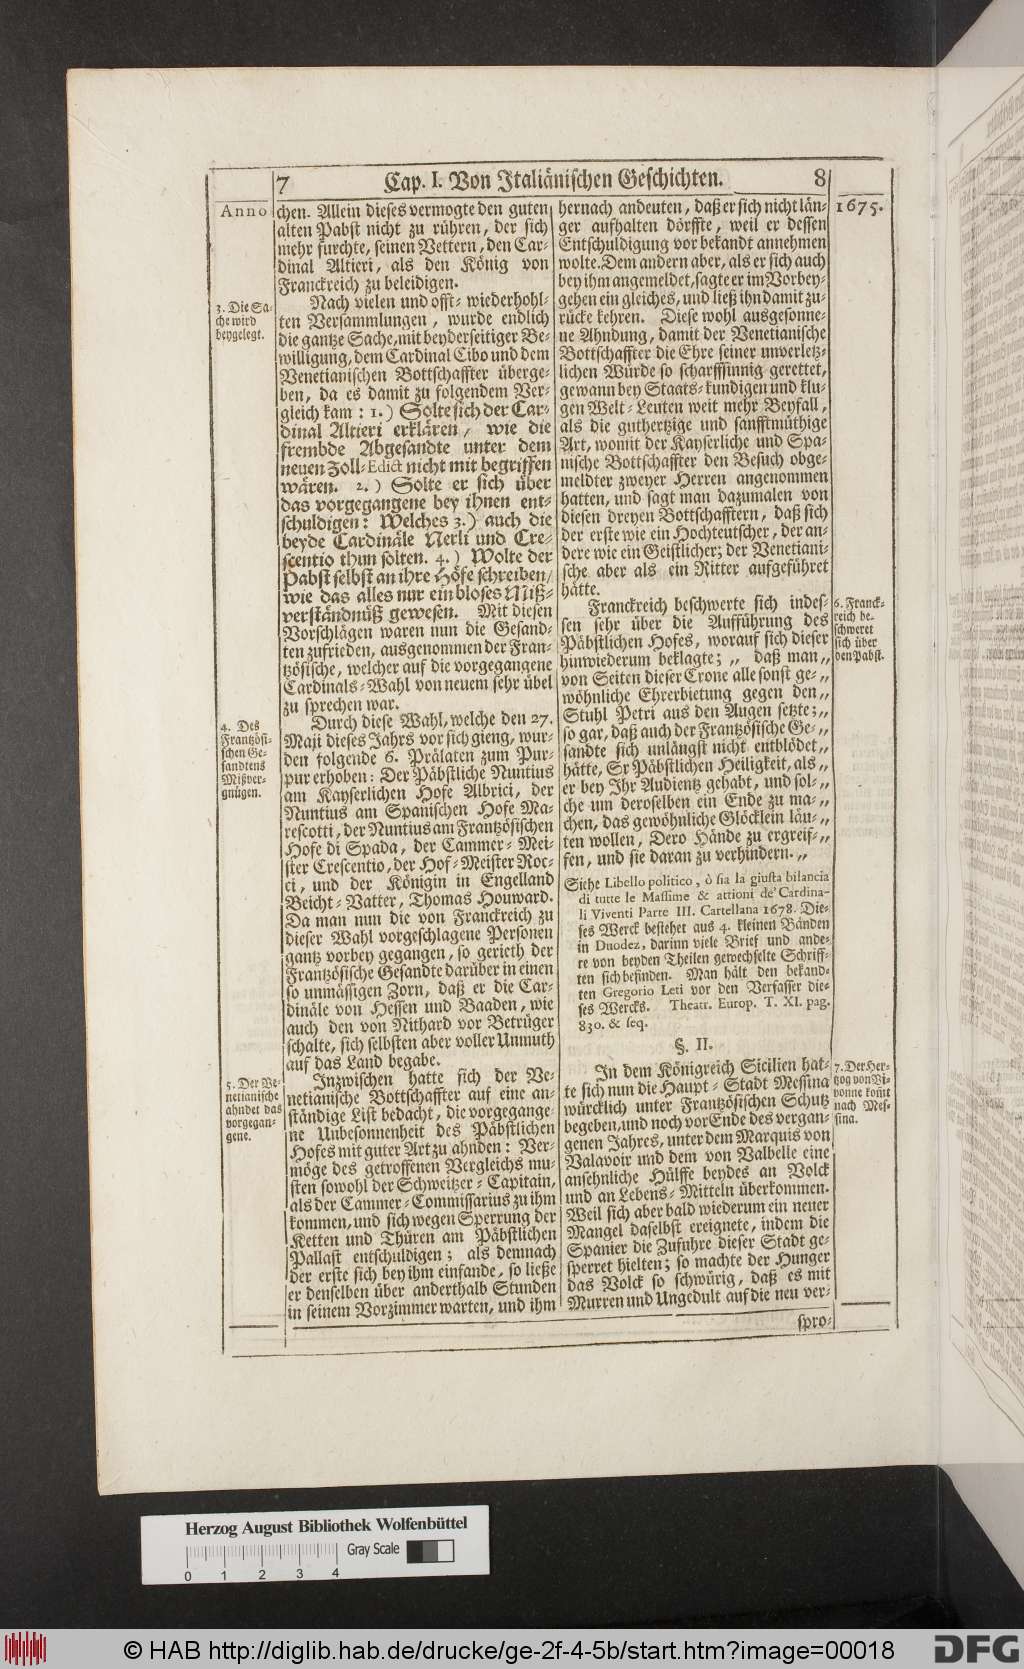 7 Cap. I. Von Italiänischen Geschichten. 8
Anno
1675.
chen. Allein dieses vermogte den guten
alten Pabst nicht zu rühren, der sich
mehr fürchte, seinen Vettern, den Car-
dinal Altieri, als den König von
Franckreich zu beleidigen.
3. Die Sa-
che wird
beygelegt.
Nach vielen und offt-wiederhohl-
ten Versammlungen, wurde endlich
die gantze Sache, mit beyderseitiger Be-
willigung, dem Cardinal Cibo und dem
Venetianischen Bottschaffter überge-
ben, da es damit zu folgendem Ver-
gleich kam: 1.) Solte sich der Car-
dinal Altieri erklären, wie die
frembde Abgesandte unter dem
neuen Zoll-Edict nicht mit begriffen
wären. 2.) Solte er sich über
das vorgegangene bey ihnen ent-
schuldigen: Welches 3.) auch die
beyde Cardinäle Nerli und Cre-
scentio thun solten. 4.) Wolte der
Pabst selbst an ihre Höfe schreiben/
wie das alles nur ein bloses Miß-
verständnüß gewesen. Mit diesen
Vorschlägen waren nun die Gesand-
ten zufrieden, ausgenommen der Fran-
tzösische, welcher auf die vorgegangene
Cardinals-Wahl von neuem sehr übel
zu sprechen war.
4. Des
Frantzösi-
schen Ge-
sandtens
Mißver-
gnügen.
Durch diese Wahl, welche den 27.
Maji dieses Jahrs vor sich gieng, wur-
den folgende 6. Prälaten zum Pur-
pur erhoben: Der Päbstliche Nuntius
am Kayserlichen Hofe Albrici, der
Nuntius am Spanischen Hofe Ma-
rescotti, der Nuntius am Frantzösischen
Hofe di Spada, der Cammer-Mei-
ster Crescentio, der Hof-Meister Roc-
ci, und der Königin in Engelland
Beicht-Vatter, Thomas Houward.
Da man nun die von Franckreich zu
dieser Wahl vorgeschlagene Personen
gantz vorbey gegangen, so gerieth der
Frantzösische Gesandte darüber in einen
so unmässigen Zorn, daß er die Car-
dinäle von Hessen und Baaden, wie
auch den von Nithard vor Betrüger
schalte, sich selbsten aber voller Unmuth
auf das Land begabe.
5. Der Ve-
netianische
ahndet das
vorgegan-
gene.
Inzwischen hatte sich der Ve-
netianische Bottschaffter auf eine an-
ständige List bedacht, die vorgegange-
ne Unbesonnenheit des Päbstlichen
Hofes mit guter Art zu ahnden: Ver-
möge des getroffenen Vergleichs mu-
sten sowohl der Schweitzer-Capitain,
als der Cammer-Commissarius zu ihm
kommen, und sich wegen Sperrung der
Ketten und Thüren am Päbstlichen
Pallast entschuldigen; als demnach
der erste sich bey ihm einfande, so ließe
er denselben über anderthalb Stunden
in seinem Vorzimmer warten, und ihm
hernach andeuten, daß er sich nicht län-
ger aufhalten dörffte, weil er dessen
Entschuldigung vor bekandt annehmen
wolte. Dem andern aber, als er sich auch
bey ihm angemeldet, sagte er im Vorbey-
gehen ein gleiches, und ließ ihn damit zu-
rücke kehren. Diese wohl ausgesonne-
ne Ahndung, damit der Venetianische
Bottschaffter die Ehre seiner unverletz-
lichen Würde so scharffsinnig gerettet,
gewann bey Staats-kundigen und klu-
gen Welt-Leuten weit mehr Beyfall,
als die guthertzige und sanfftmüthige
Art, womit der Kayserliche und Spa-
nische Bottschaffter den Besuch obge-
meldter zweyer Herren angenommen
hatten, und sagt man dazumalen von
diesen dreyen Bottschafftern, daß sich
der erste wie ein Hochteutscher, der an-
dere wie ein Geistlicher; der Venetiani-
sche aber als ein Ritter aufgeführet
hätte.
6. Franck-
reich be-
schweret
sich über
den Pabst.
Franckreich beschwerte sich indes-
sen sehr über die Aufführung des
Päbstlichen Hofes, worauf sich dieser
hinwiederum beklagte; „ daß man „
von Seiten dieser Crone alle sonst ge-„
wöhnliche Ehrerbietung gegen den „
Stuhl Petri aus den Augen setzte; „
so gar, daß auch der Frantzösische Ge-„
sandte sich unlängst nicht entblödet „
hätte, Sr Päbstlichen Heiligkeit, als „
er bey Ihr Audientz gehabt, und sol-„
che um deroselben ein Ende zu ma-„
chen, das gewöhnliche Glöcklein läu-„
ten wollen, Dero Hände zu ergreif-„
fen, und sie daran zu verhindern. „
Siehe Libello politico, ò sia la giusta bilancia
di tutte le Massime & attioni de' Cardina-
li Viventi Parte III. Cartellana 1678. Die-
ses Werck bestehet aus 4. kleinen Bänden
in Duodez, darinn viele Brief und ande-
re von beyden Theilen gewechselte Schriff-
ten sich befinden. Man hält den bekand-
ten Gregorio Leti vor den Verfasser die-
ses Wercks. Theatr. Europ. T. XI. pag.
830. & seq.
§. II.
7. Der Her-
tzog von Vi-
vonne kom̃t
nach Mes-
sina.
In dem Königreich Sicilien hat-
te sich nun die Haupt-Stadt Messina
würcklich unter Frantzösischen Schutz
begeben, und noch vor Ende des vergan-
genen Jahres, unter dem Marquis von
Valavoir und dem von Valbelle eine
ansehnliche Hülffe beydes an Volck
und an Lebens-Mitteln überkommen.
Weil sich aber bald wiederum ein neuer
Mangel daselbst ereignete, indem die
Spanier die Zufuhre dieser Stadt ge-
sperret hielten; so machte der Hunger
das Volck so schwürig, daß es mit
Murren und Ungedult auf die neu ver-
spro-
Herzog August Bibliothek Wolfenbüttel
0 1 2 3 4 Gray Scale
© HAB http://diglib.hab.de/drucke/ge-2f-4-5b/start.htm?image=00018
DFG